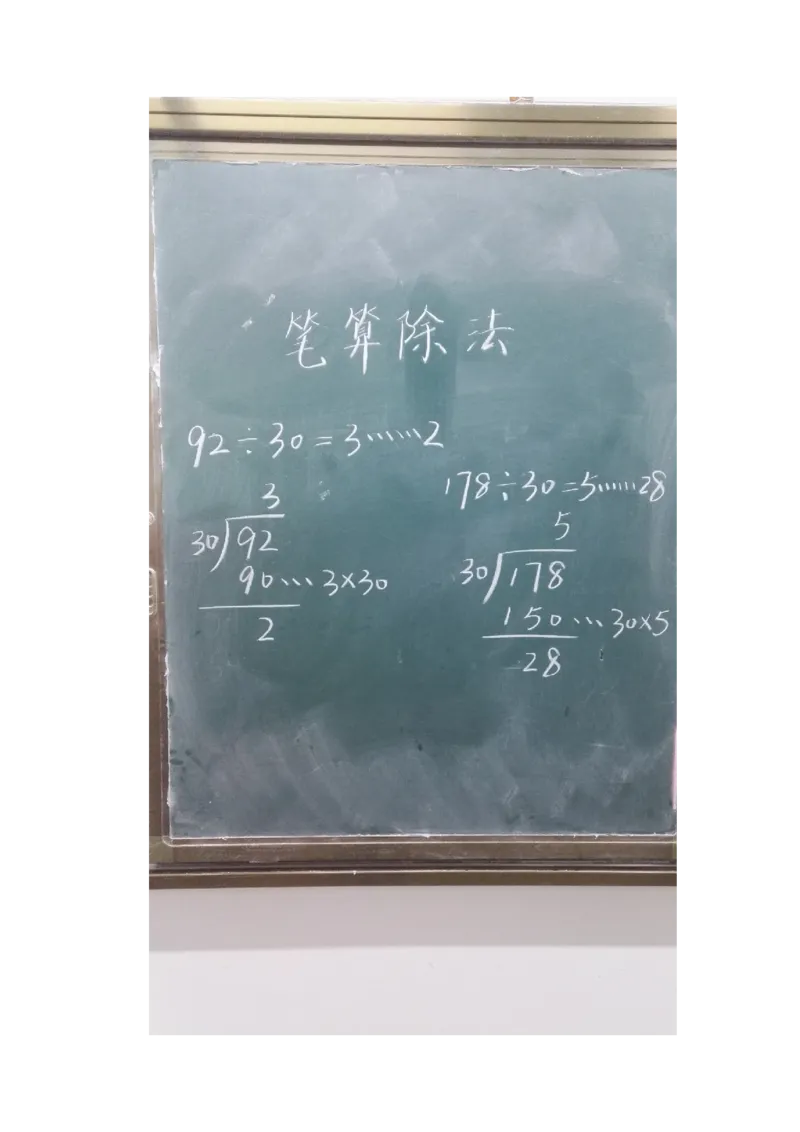 笔算除法
92÷30=3……2
3
30)92
90…3×30
2
178÷30=5……28
5
30)178
150…30×5
28